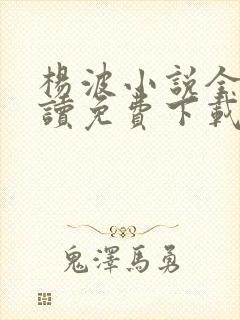 楊波小說全
讀免費下載
鬼澤馬勇